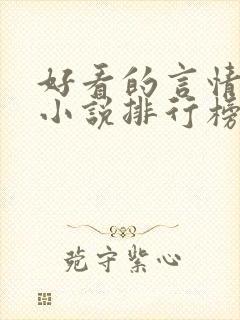 好看的言情
小说排行榜
苑守紫心